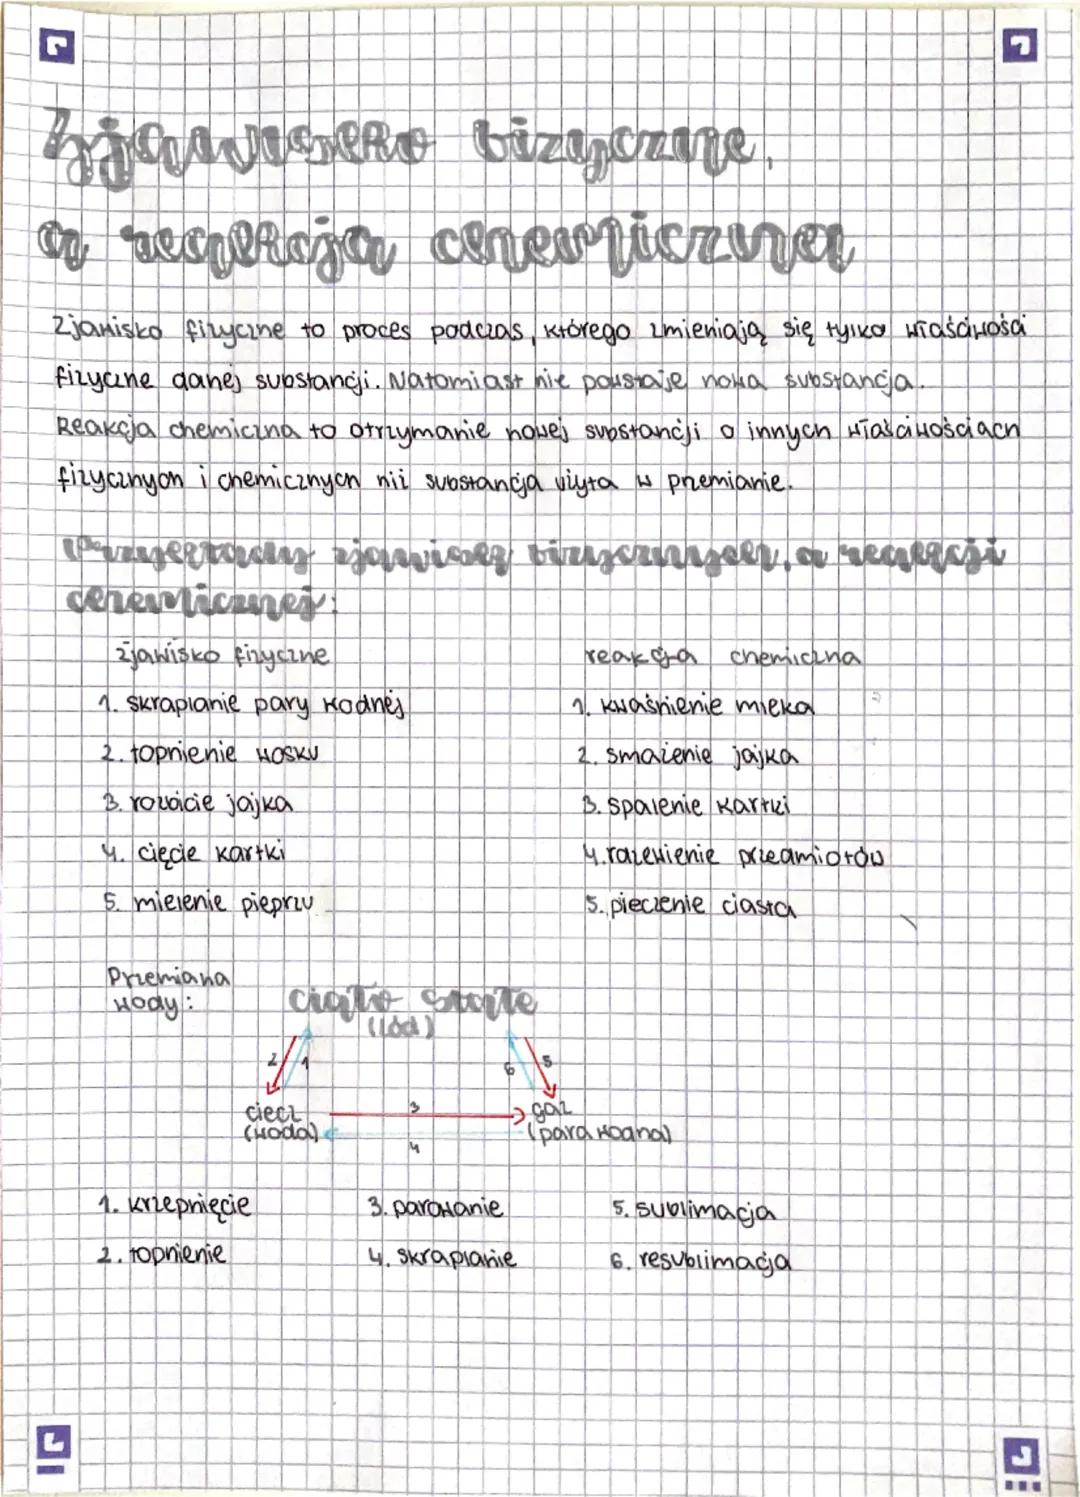 Zjawisko fizyczne,
a reakcja chemiczna
Zjawisko fizyczne to proces podczas, którego zmieniają się tylko właściwości
fizyczne danej substancji. Natomiast nie powstaje nowa substancja.
Reakcja chemiczna to otrzymanie nowej substancji o innych właściwościach
fizycznych i chemicznych niż substancja użyta w przemianie.
Przykłady zjawisk fizycznych, a reakcji
chemicznej:
zjawisko fizyczne reakcja chemiczna
1. skraplanie pary wodnej 1. kwaśnienie mleka
2. topnienie wosku 2. smażenie jajka
3. rozbicie jajka 3. spalenie kartki
4. cięcie kartki 4. rdzewienie przedmiotów
5. mielenie pieprzu 5. pieczenie ciasta
Przemiana
wody:
ciało stałe
(lód)
2 1 6 5
ciecz 3 gaz
(woda) 4 (para wodna)
1. krzepnięcie 3. parowanie 5. sublimacja
2. topnienie 4. skraplanie 6. resublimacja